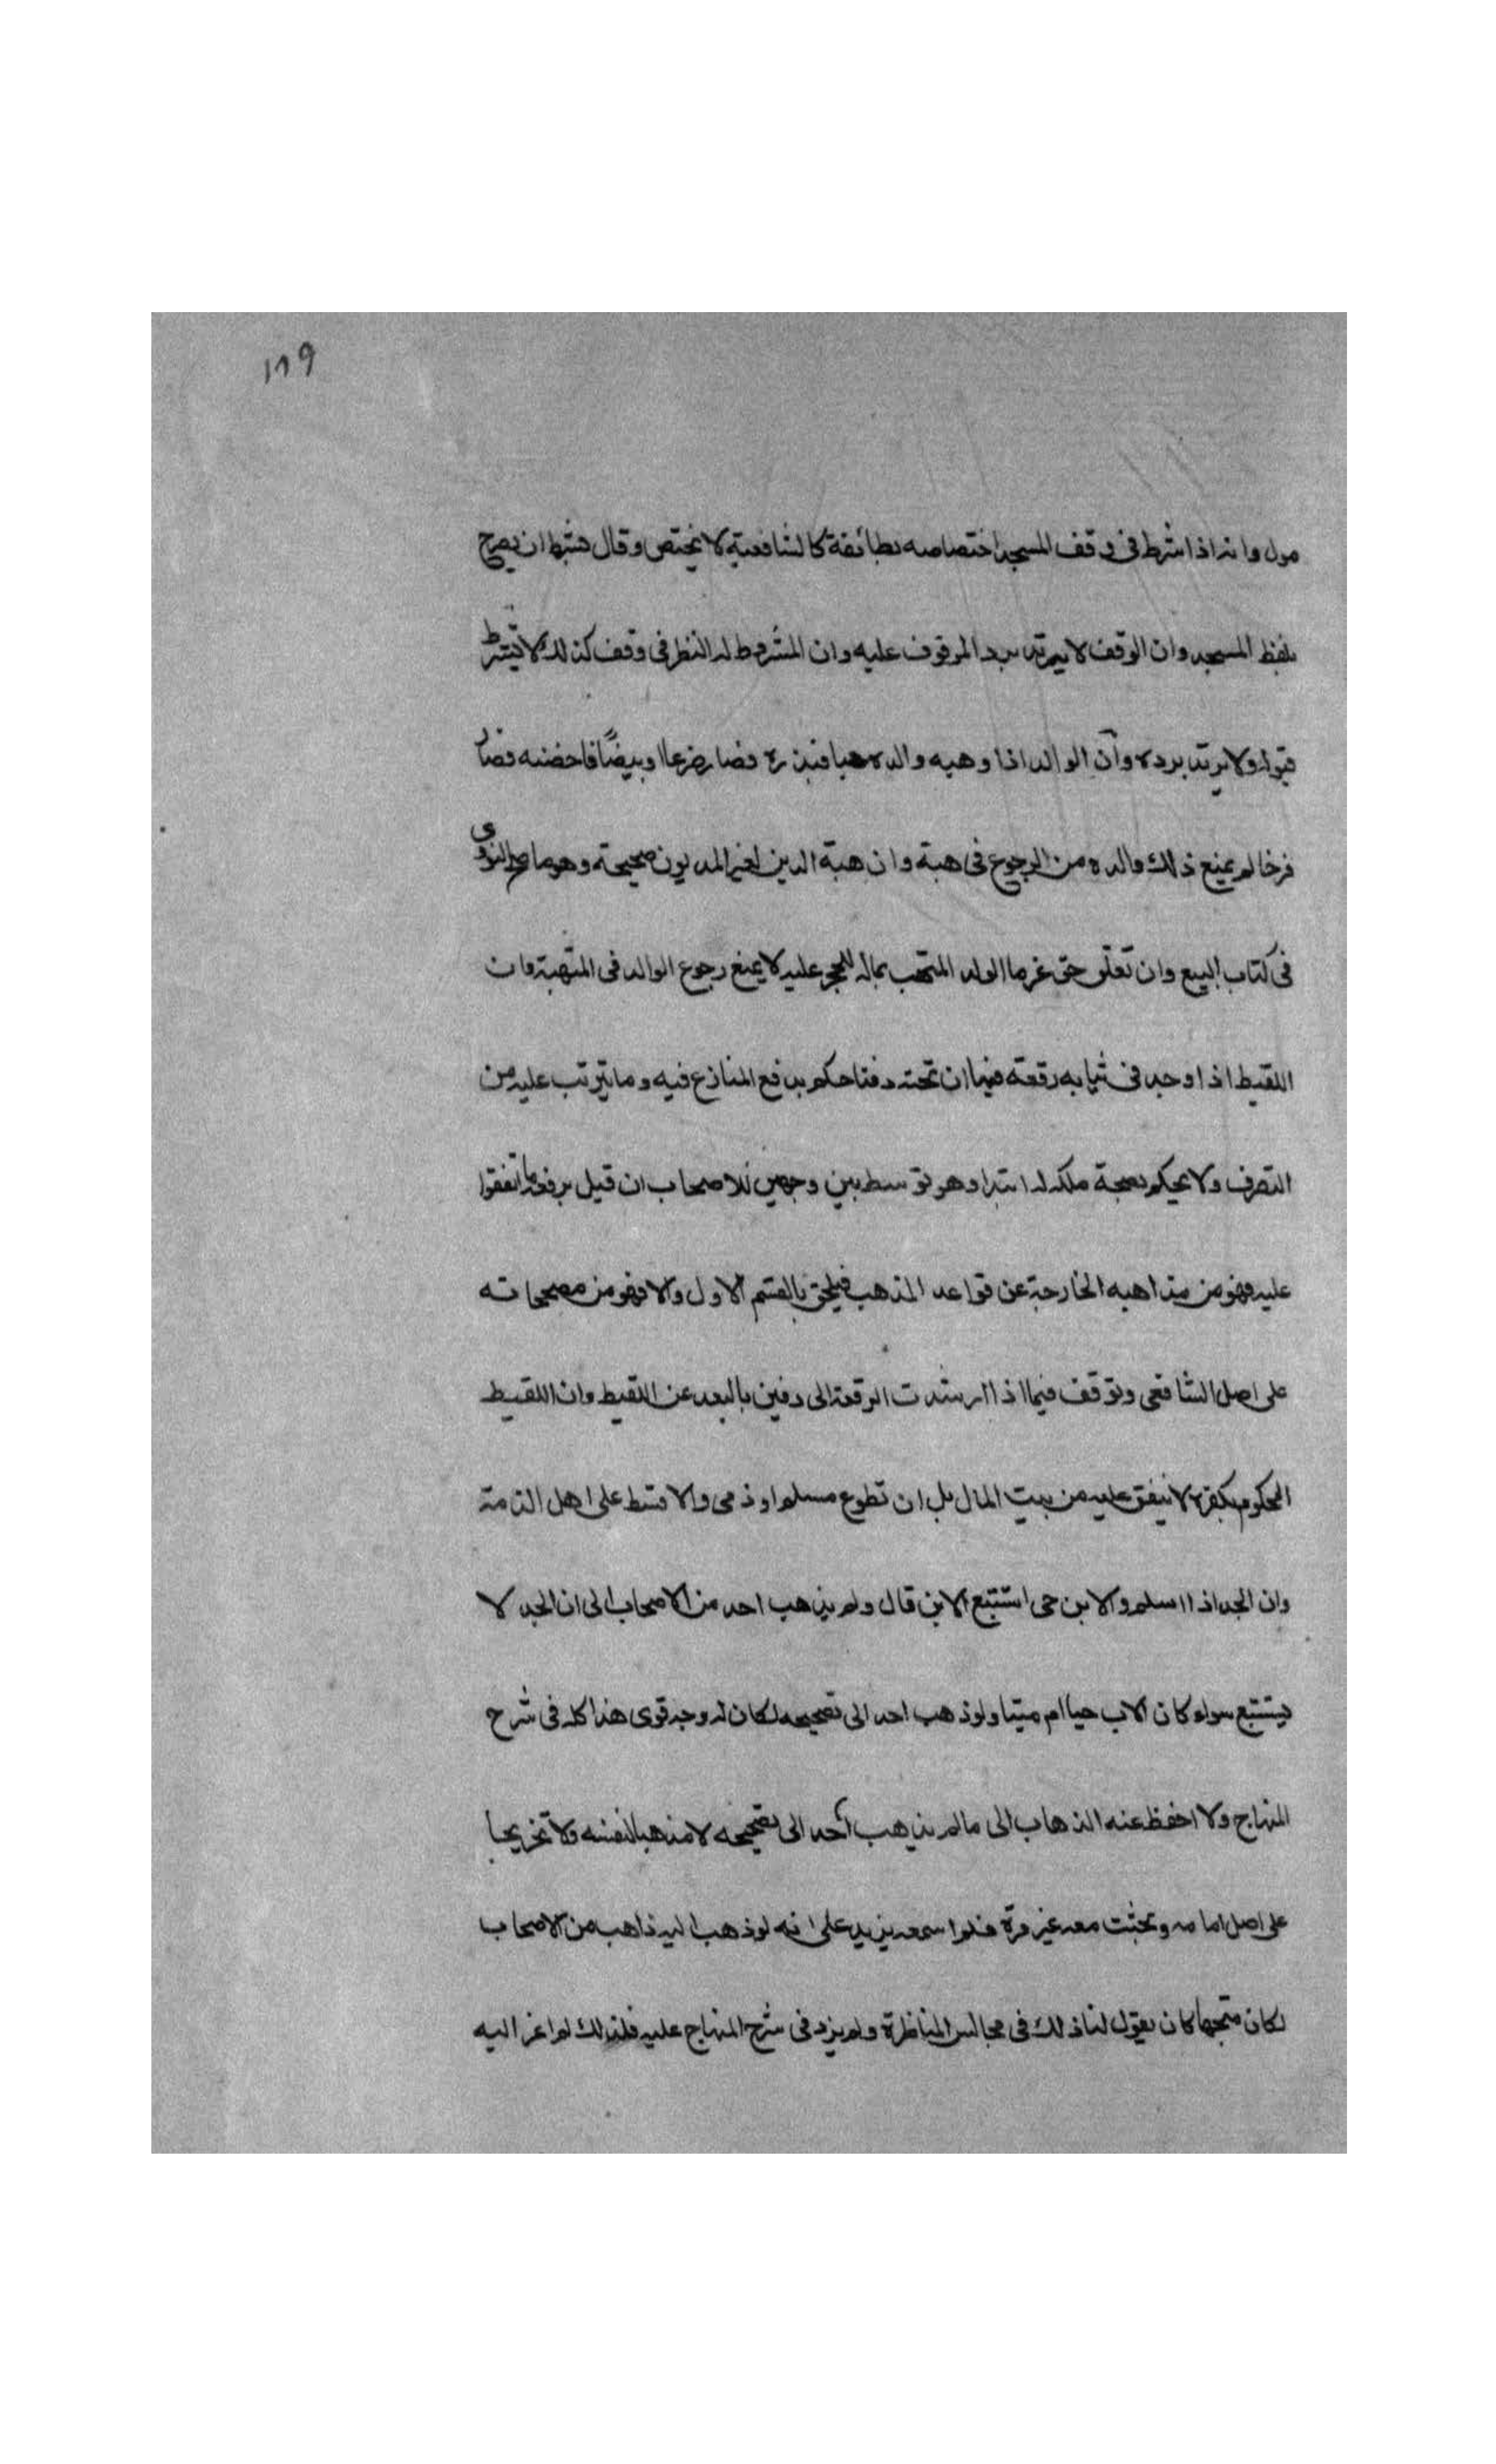 ١٨٩
مول وانه اذا اشرط في وقف المسجد اختصاصه بطائفة كالشافعية لا يختص وقال هشبها ان يصرح
بلفظ المسجد وان الوقف لا يرتد برد الموقوف عليه وان المشروط له النظر في وقف كذلك لا يشترط
قبوله ولا يرتد برده وأن الوالد اذا وهبه والده حبا فبذره فصار زرعا او بيضًا فاحضنه فصار
فرخا لم يمنع ذلك والده من الرجوع في هبة وان هبة الدين لغير المديون صحيحة وهو ما صححه النووى
في كتاب البيع وان تعلق حق غرما الولد المتهب بماله للحجر عليه لا يمنع رجوع الوالد في المتهبة وان
اللقيط اذا وجد في ثيابه رقعة فيها ان تحته دفنا حكم بدفع المنازع فيه وما يترتب عليه من
التصرف ولا يحكم بصحة ملكه له ابتدا وهو توسط بين وجهين للاصحاب ان قيل برفعه ما اتفقوا
عليه فهو من مذاهبه الخارجة عن قواعد المذهب فيلحق بالقسم الاول والا فهو من مصححاته
على اصل الشافعى وتوقف فيما اذا ارشدت الرقعة الى دفين بالبعد عن اللقيط وان اللقيط
المحكوم بكفره لا ينفق عليه من بيت المال بل ان تطوع مسلم او ذمى والا قسط على اهل الذمة
وان الجد اذا اسلم والابن حى استتبع الابن قال ولم يذهب احد من الاصحاب الى ان الجد لا
يستتبع سواء كان الاب حيا ام ميتا ولو ذهب احد الى تصحيحه لكان له وجه قوى هذا كله في شرح
المنهاج ولا احفظ عنه الذهاب الى ما لم يذهب أحد الى تصحيحه لا مذهبا لنفسه ولا تخريجا
على اصل امامه وبحثت معه غير مرة فلم اسمعه يزيد على انه لو ذهب اليه ذاهب من الاصحاب
لكان متجها كان يقول لنا ذلك في مجالس المناظرة ولم يزد في شرح المنهاج عليه فلذلك لم اعز اليه